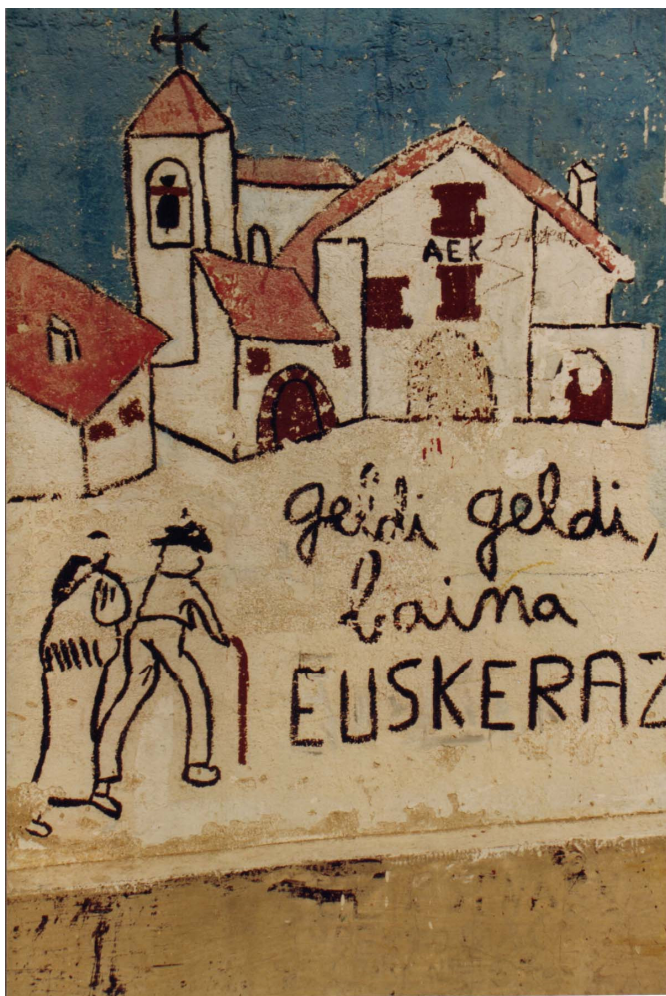 AEK
geldi geldi,
baina
EUSKERAZ